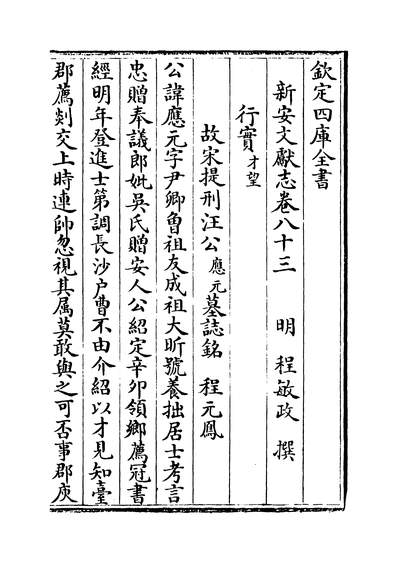 欽定四庫全書
新安文獻志卷八十三　明　程敏政　撰
行實才望
故宋提刑汪公應元墓誌銘　程元鳳
公諱應元字尹卿魯祖友成祖大昕號養拙居士考言
忠贈奉議郎妣吳氏贈安人公紹定辛卯領鄉薦冠書
經明年登進士第調長沙户曹不由介紹以才見知臺
郡薦剡交上時連帥忽視其属莫敢與之可否事郡庾